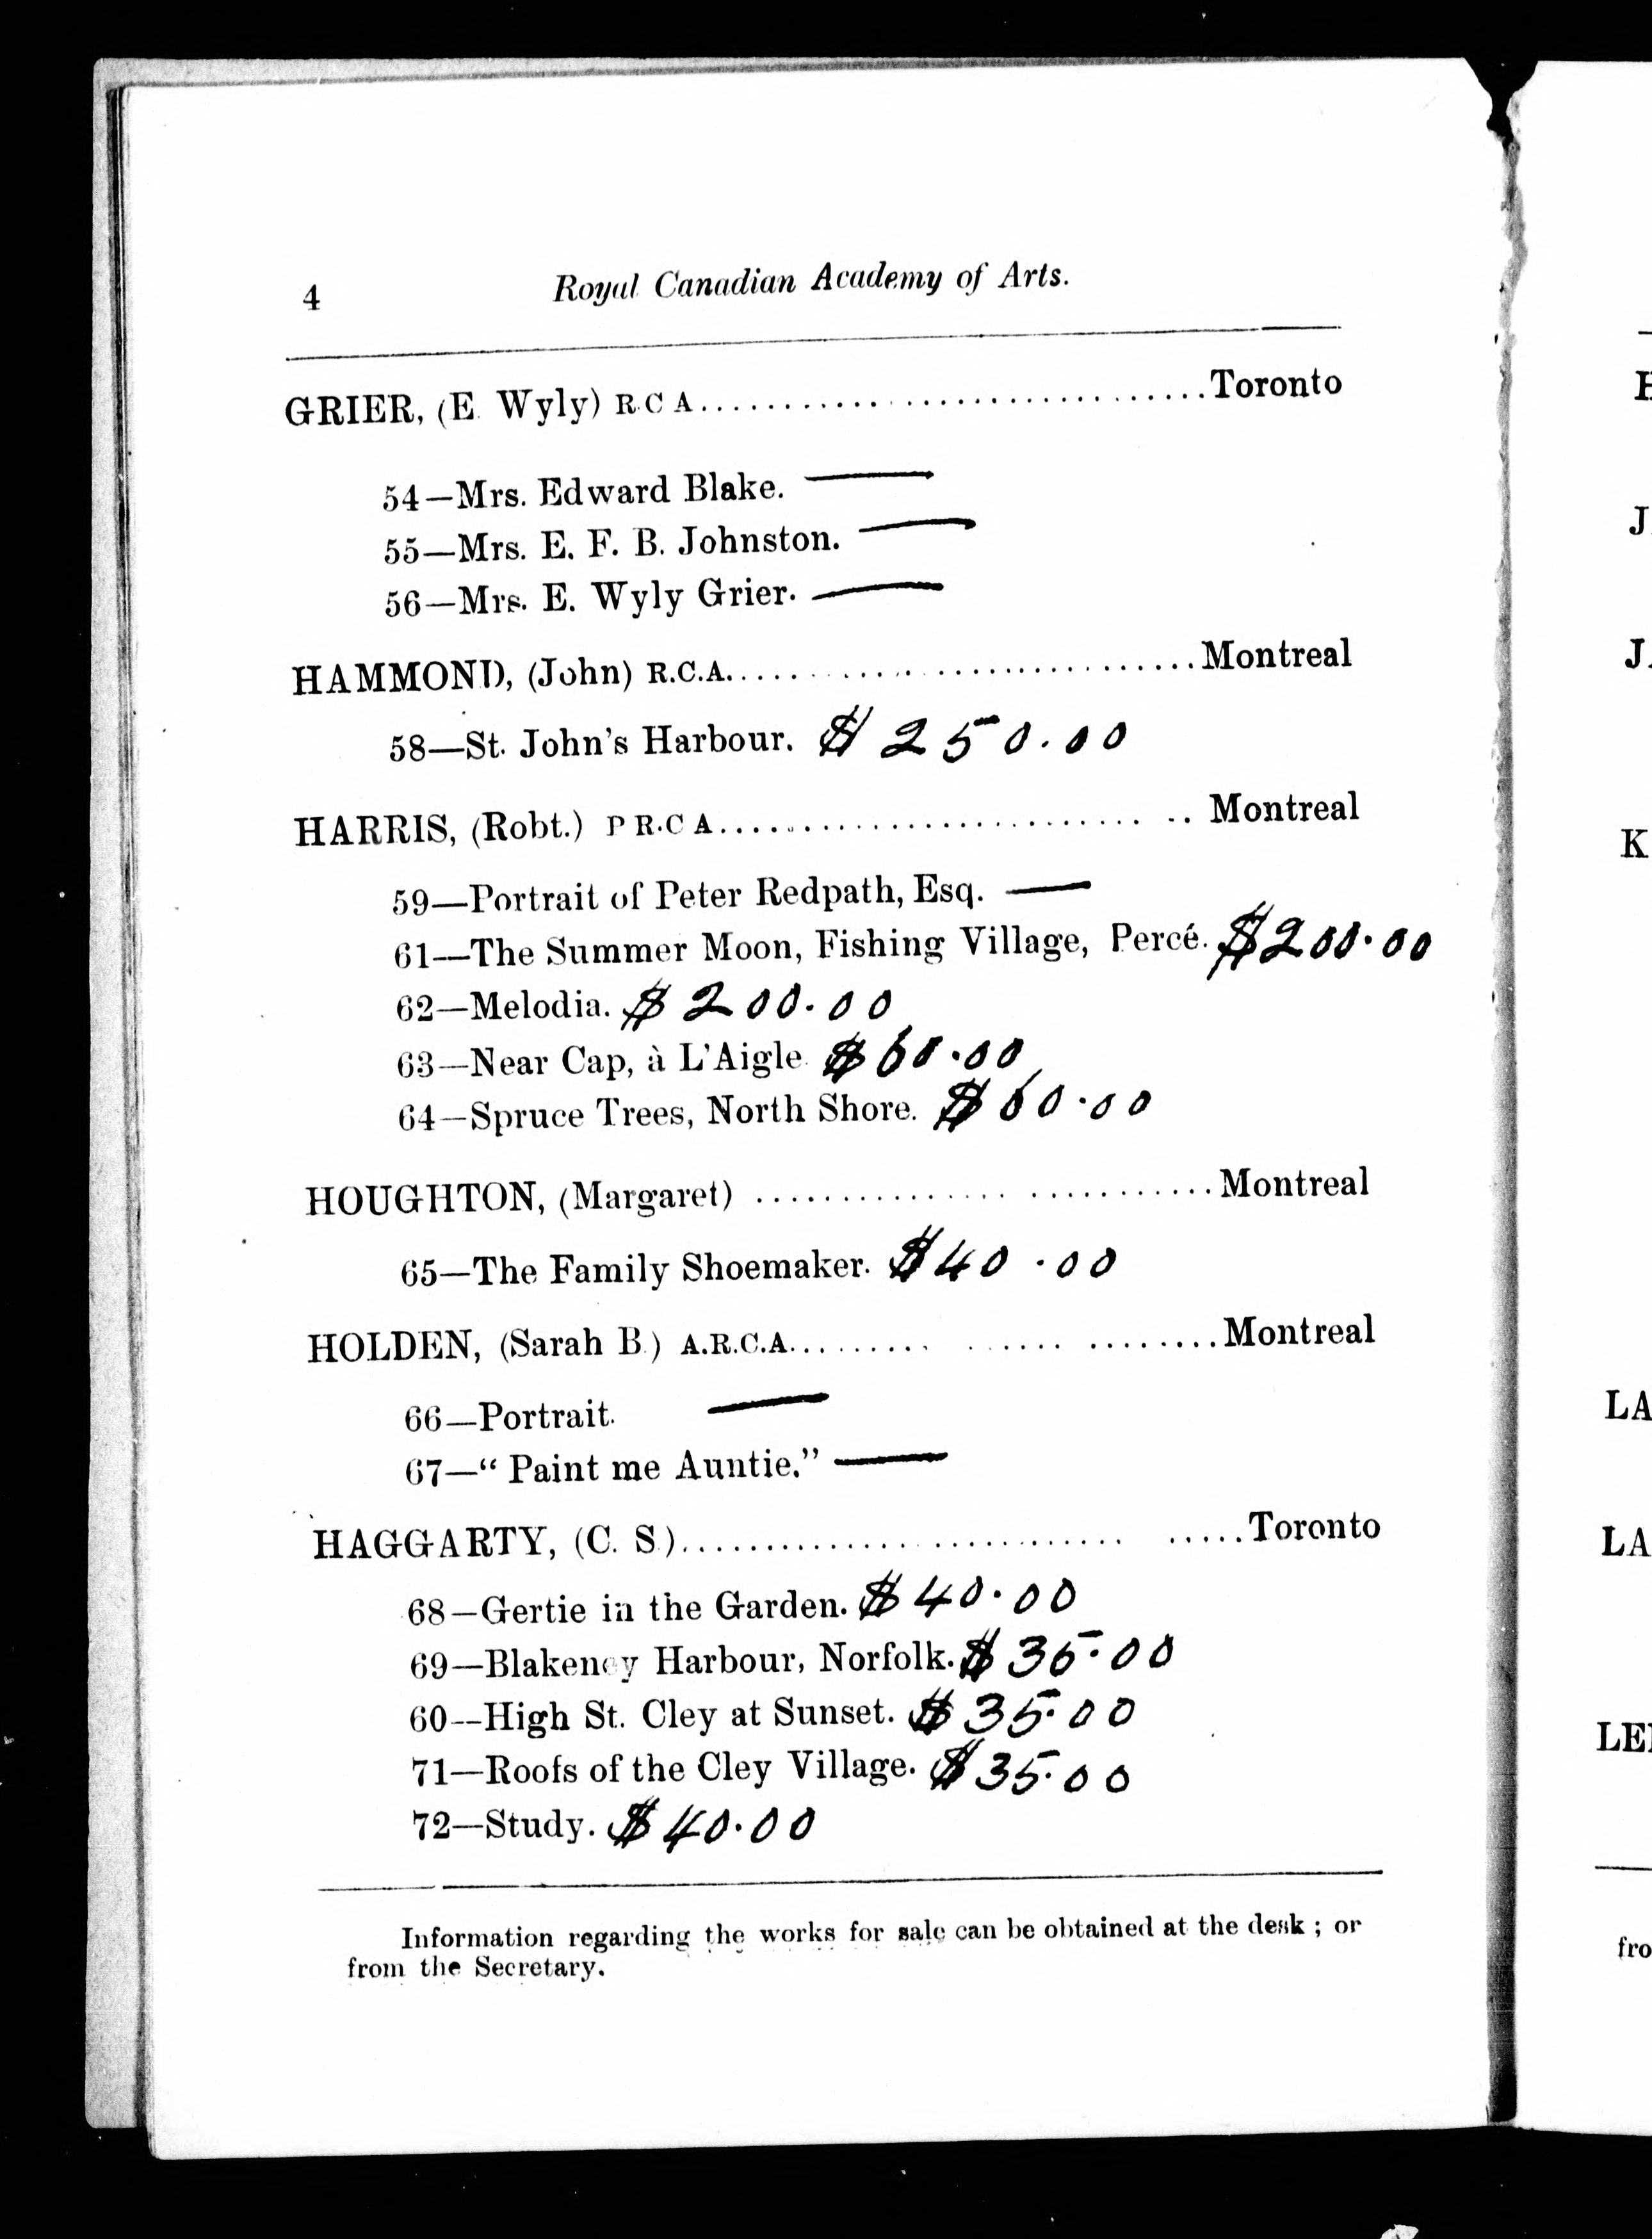 4 Royal Canadian Academy of Arts.
GRIER, (E. Wyly) R.C A..............................Toronto
54—Mrs. Edward Blake. —
55—Mrs. E. F. B. Johnston. —
56—Mrs. E. Wyly Grier. —
HAMMOND, (John) R.C.A..............................Montreal
58—St. John's Harbour. $250.00
HARRIS, (Robt.) P R.C A............................ Montreal
59—Portrait of Peter Redpath, Esq. —
61—The Summer Moon, Fishing Village, Percé. $200.00
62—Melodia. $200.00
63—Near Cap, à L'Aigle. $60.00
64—Spruce Trees, North Shore. $60.00
HOUGHTON, (Margaret) ..........................Montreal
65—The Family Shoemaker. $40.00
HOLDEN, (Sarah B.) A.R.C.A..........................Montreal
66—Portrait. —
67—" Paint me Auntie." —
HAGGARTY, (C. S.)................................Toronto
68—Gertie in the Garden. $40.00
69—Blakeney Harbour, Norfolk. $35.00
60—High St. Cley at Sunset. $35.00
71—Roofs of the Cley Village. $35.00
72—Study. $40.00
Information regarding the works for sale can be obtained at the desk ; or
from the Secretary.
J
J.
K
LA
LA
fro